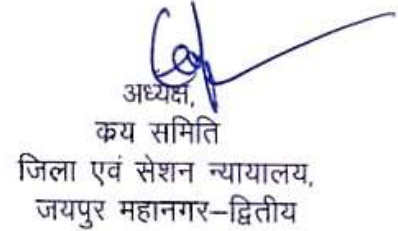 अध्यक्ष,
क्रय समिति
जिला एवं सेशन न्यायालय,
जयपुर महानगर–द्वितीय